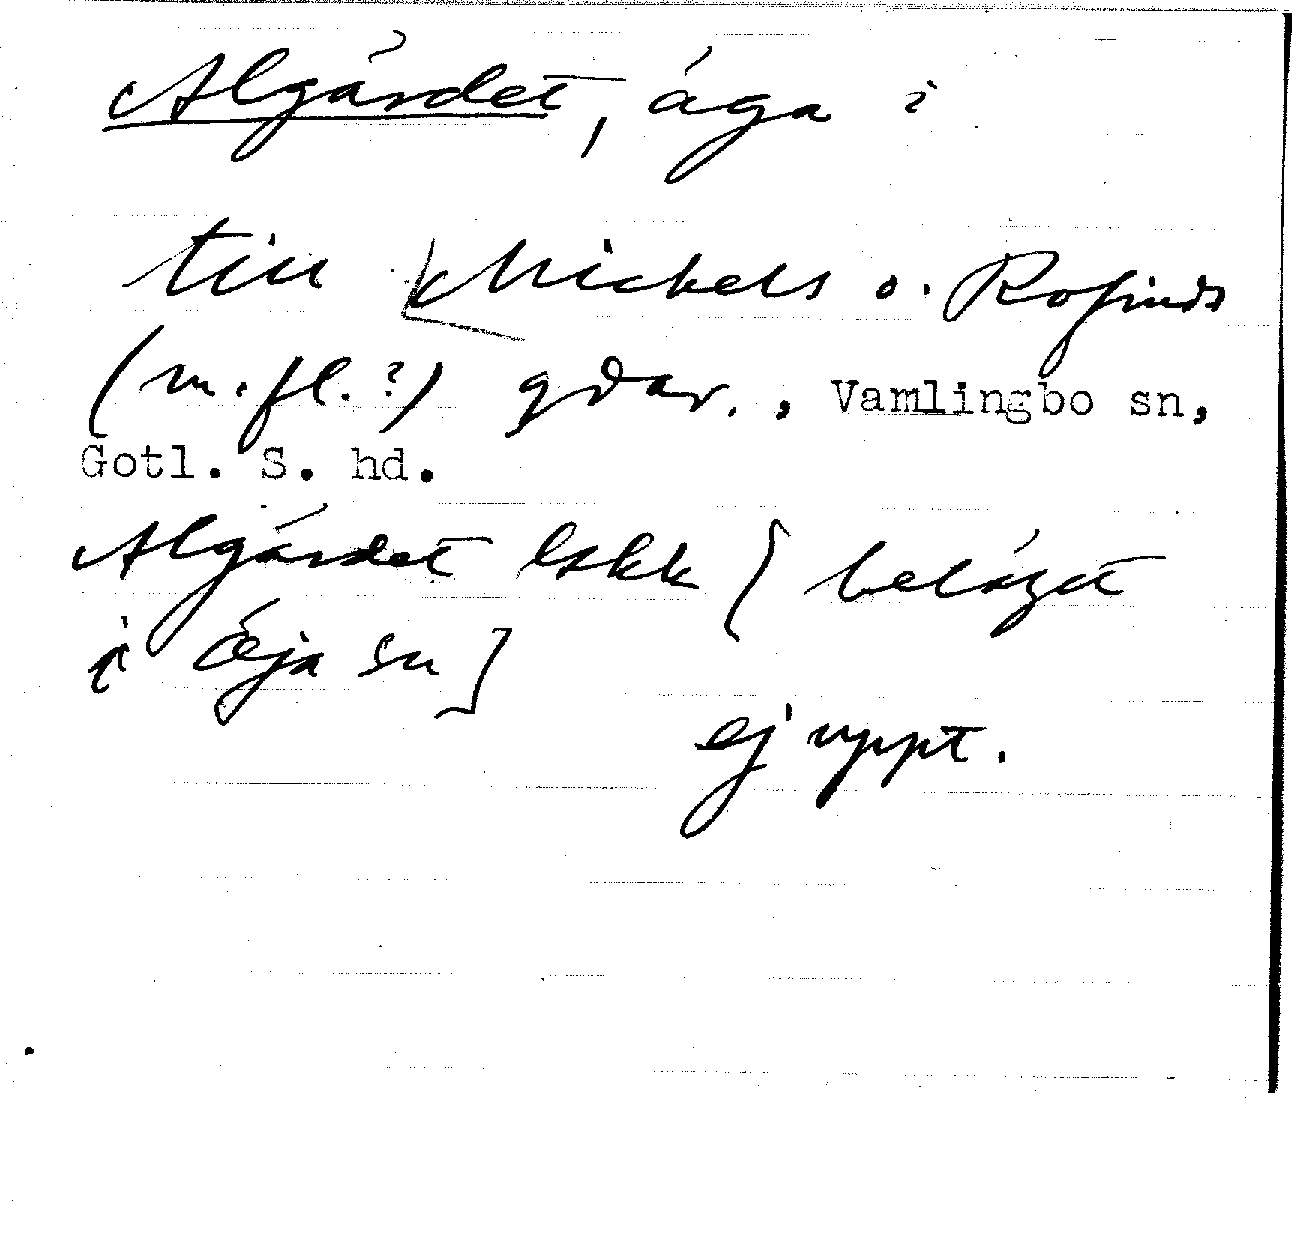 Algårdet, äga i
till Mickels o. Rofinds
(m.fl.?) gdar., Vamlingbo sn,
Gotl. S. hd.
Algårdet lskk [beläget
i Öja sn]
ej uppt.